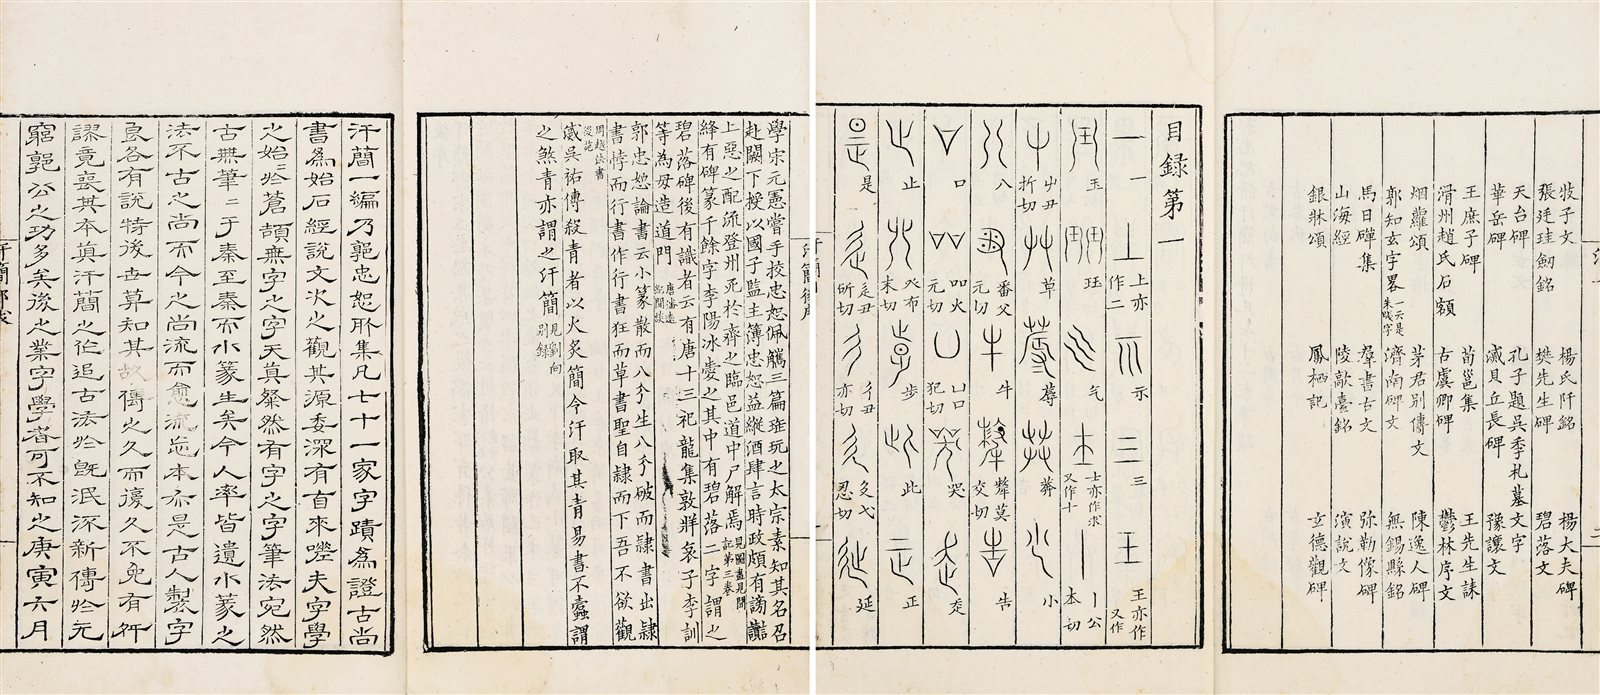 牧子文 楊氏阡銘 楊大夫碑
張廷珪劒銘 樊先生碑 碧落文
天台碑 孔子題吳季札墓文字
華岳碑 滅貝丘長碑 豫讓文
王庶子碑 荀邕集 王先生誄
滑州趙氏石額 古虞卿碑 鬱林序文
烟蘿頌 茅君別傳文 陳逸人碑
郭知玄字畧一云是朱牋字 濟南碑文 無錫縣銘
馬日磾集 羣書古文 弥勒像碑
山海經 陵歊臺銘 演說文
銀牀頌 鳳栖記 玄德觀碑
目録第一
一 上亦作二 示 三 王亦作又作
玉 珏 气 士亦作求又作十 丨公本切
屮丑折切 草 蓐 茻 小
八 番父元切 牛 犛莫交切 告
口 吅火元切 凵口犯切 哭 走
止 癶布末切 步 此 正
是 辵丑所切 彳丑亦切 廴弋忍切 延
汗簡後序
學宗元憲嘗手挍忠恕佩觿三篇琟玩之太宗素知其名召
赴闕下授以國子監主簿忠恕益縱酒肆言時政頗有謗讟
上惡之配流登州死於齊之臨邑道中尸解焉見圖畫見聞記第三卷
絳有碑篆千餘字李陽冰愛之其中有碧落二字謂之
碧落碑後有識者云有唐十三祀龍集敦牂哀子李訓
等為毋造道門
郭忠恕論書云小篆散而八分生八分破而隸書出隸
書悖而行書作行書狂而草書聖自隸而下吾不欲觀
周越法書
後漢吳祐傳殺青者以火炙簡今汗取其青易書不蠹謂
之煞青亦謂之汗簡見劉向別録
汗簡一編乃郭忠恕所集凡七十一家字蹟為證古尚
書為始石經說文次之觀其源委深有自來嗟夫字學
之始於蒼頡無字之字天真粲然有字之字筆法宛然
古無筆二于秦至秦而小篆生矣今人率皆遺小篆之
法不古之尚而今之尚流而愈流忘本亦是古人製字
良各有說特後世算知其故傳之久而復久不免有舛
謬竟喪其本真汗簡之作追古法於既泯添新傳於元
窮郭公之功多矣後之業字學者可不知之庚寅六月